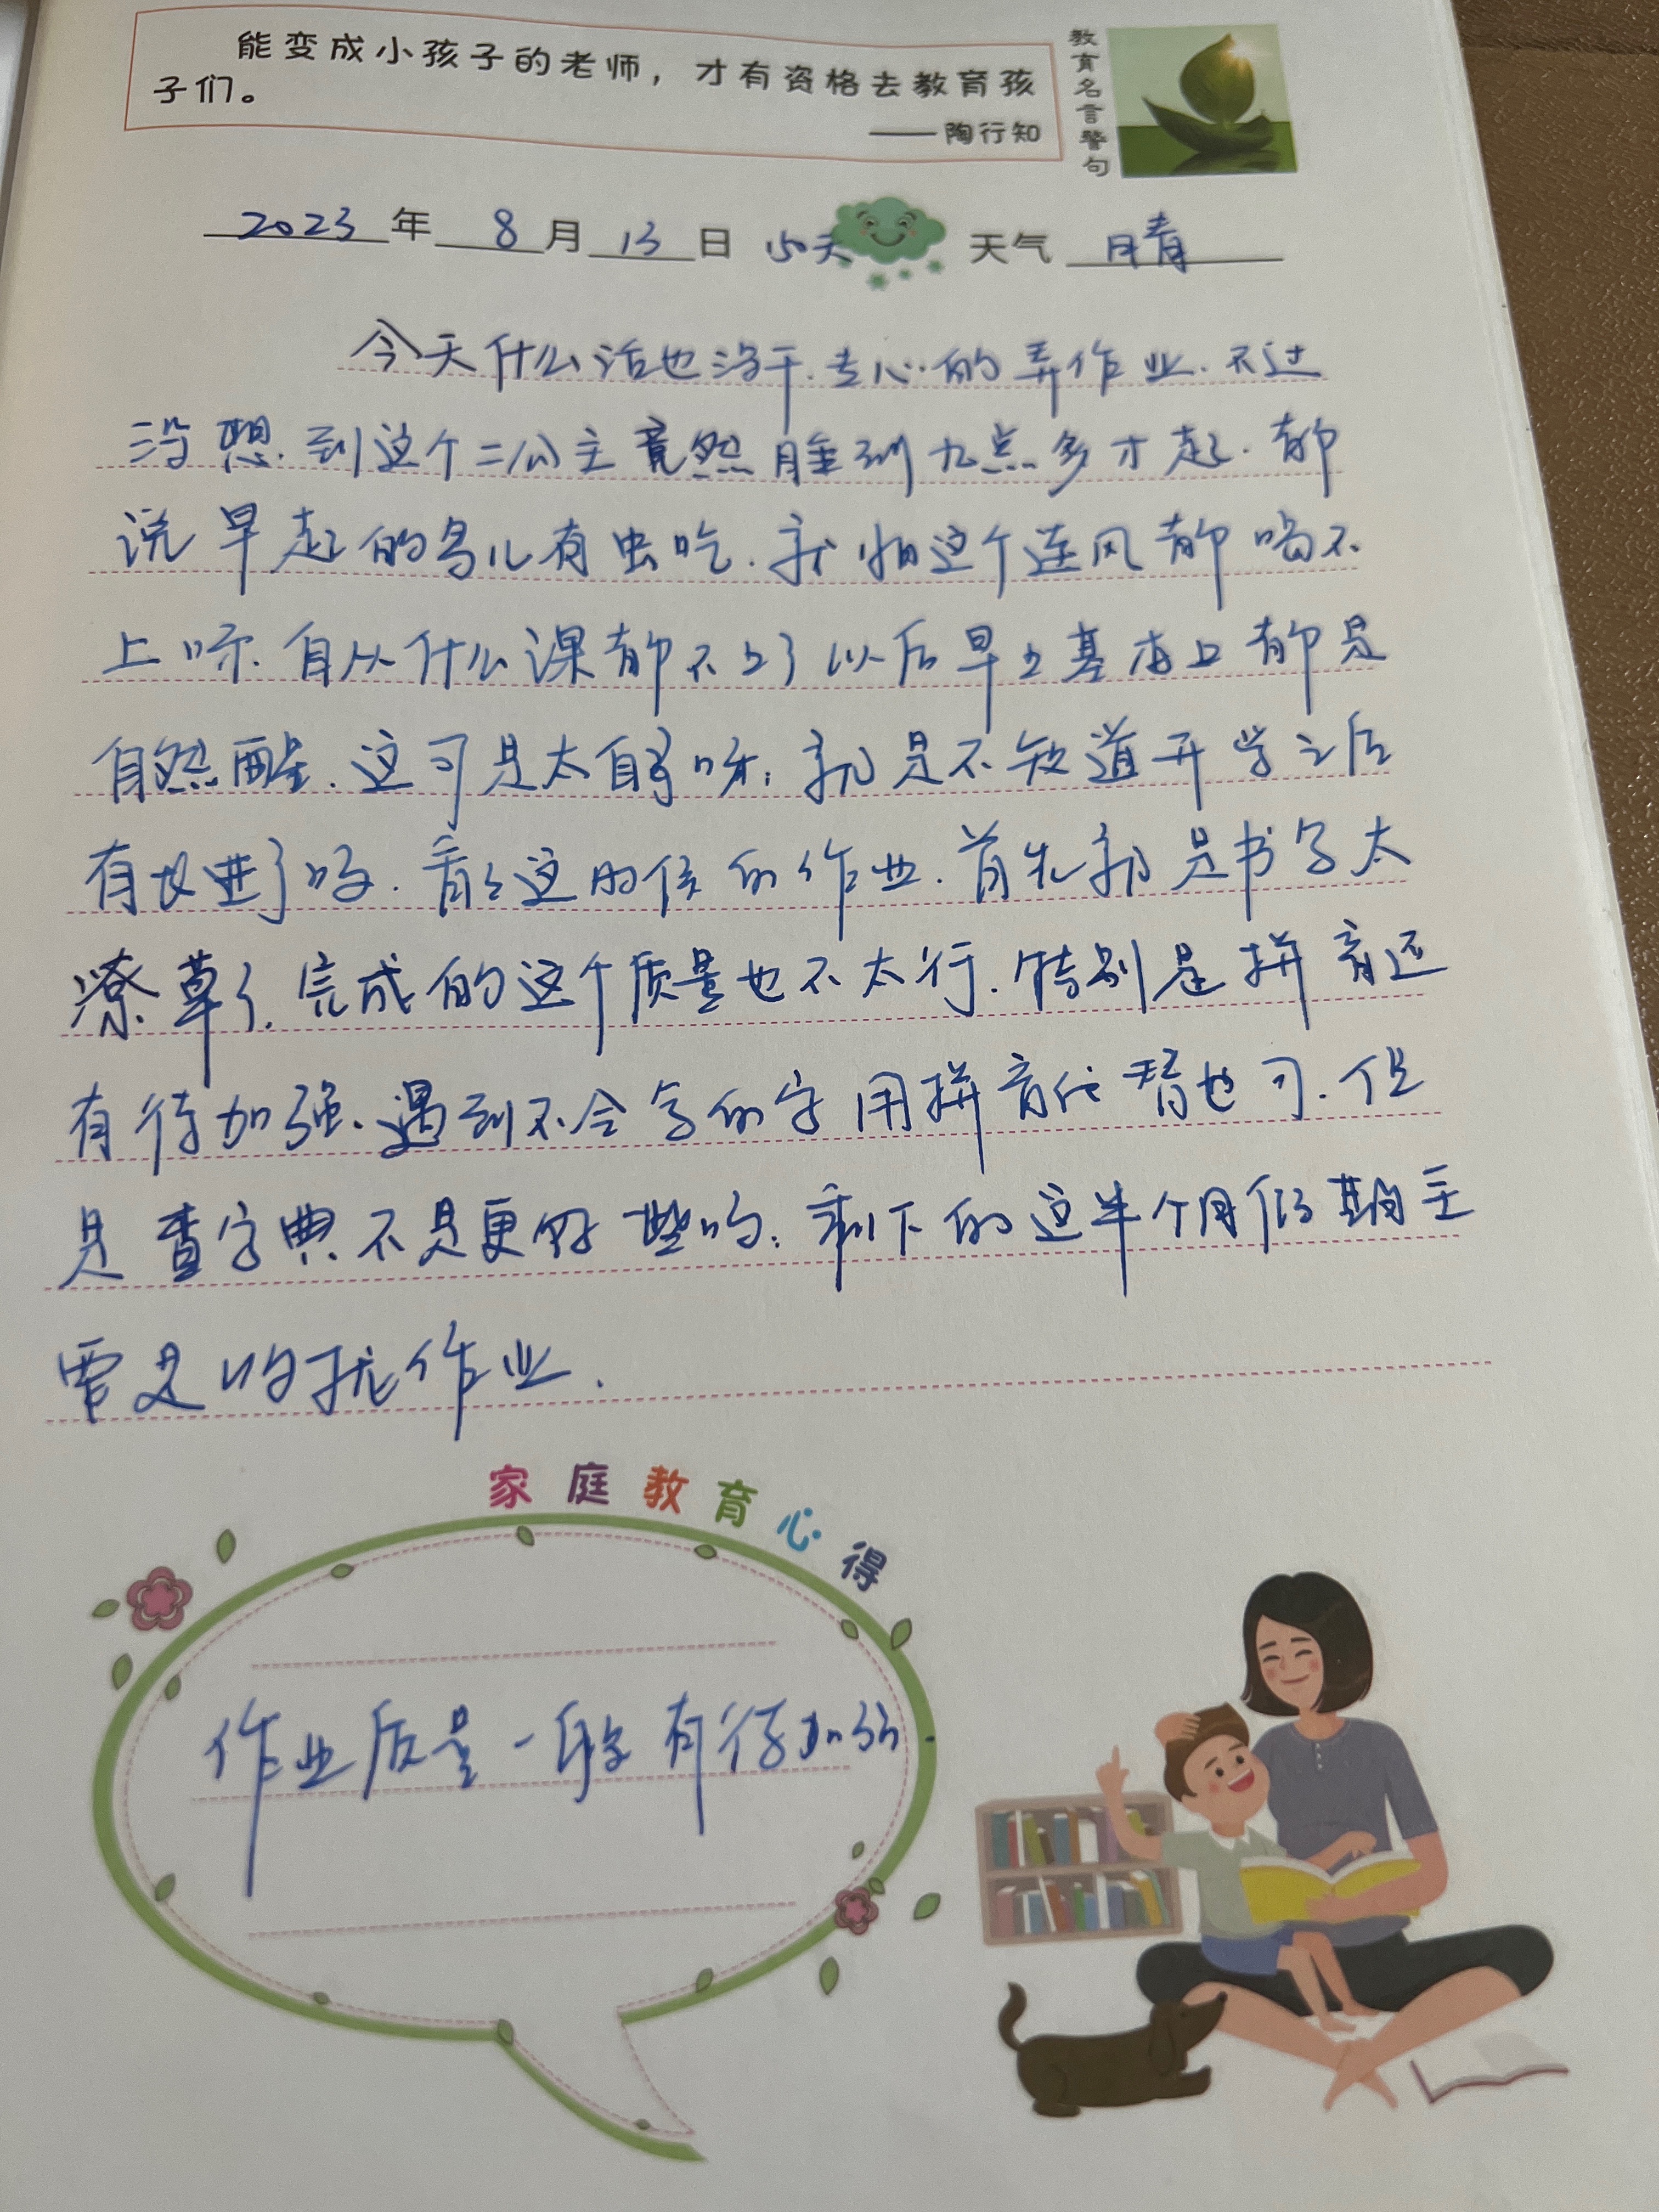 能变成小孩子的老师，才有资格去教育孩
子们。
——陶行知
教育名言警句
2023年8月13日 150天 天气 晴
今天什么活也没干.专心的弄作业.不过
没想到这个二公主竟然睡到九点多才起.都
说早起的鸟儿有虫吃.我怕这个连风都喝不
上呀.自从什么课都不上了以后早上基本上都是
自然醒.这可是太自了呀.就是不知道开学之后
有长进了吗.看看这的作业.首先就是书写太
潦草了.完成的这个质量也不太行.特别是拼音还
有待加强.遇到不会写的字用拼音代替也可.但
是查字典不是更好一些吗.剩下的这半个月假期主
要是的抓作业.
家庭教育心得
作业质量一般 有待加强.